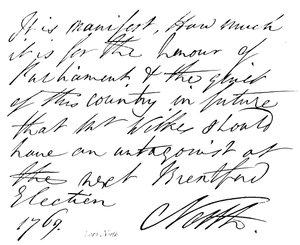 It is manifest, how much
it is for the honour of
Parliament & the quiet
of this country in future
that Mr Wilkes should
have an antagonist at
the next Brentford
Election
1769.
North.
Lord North